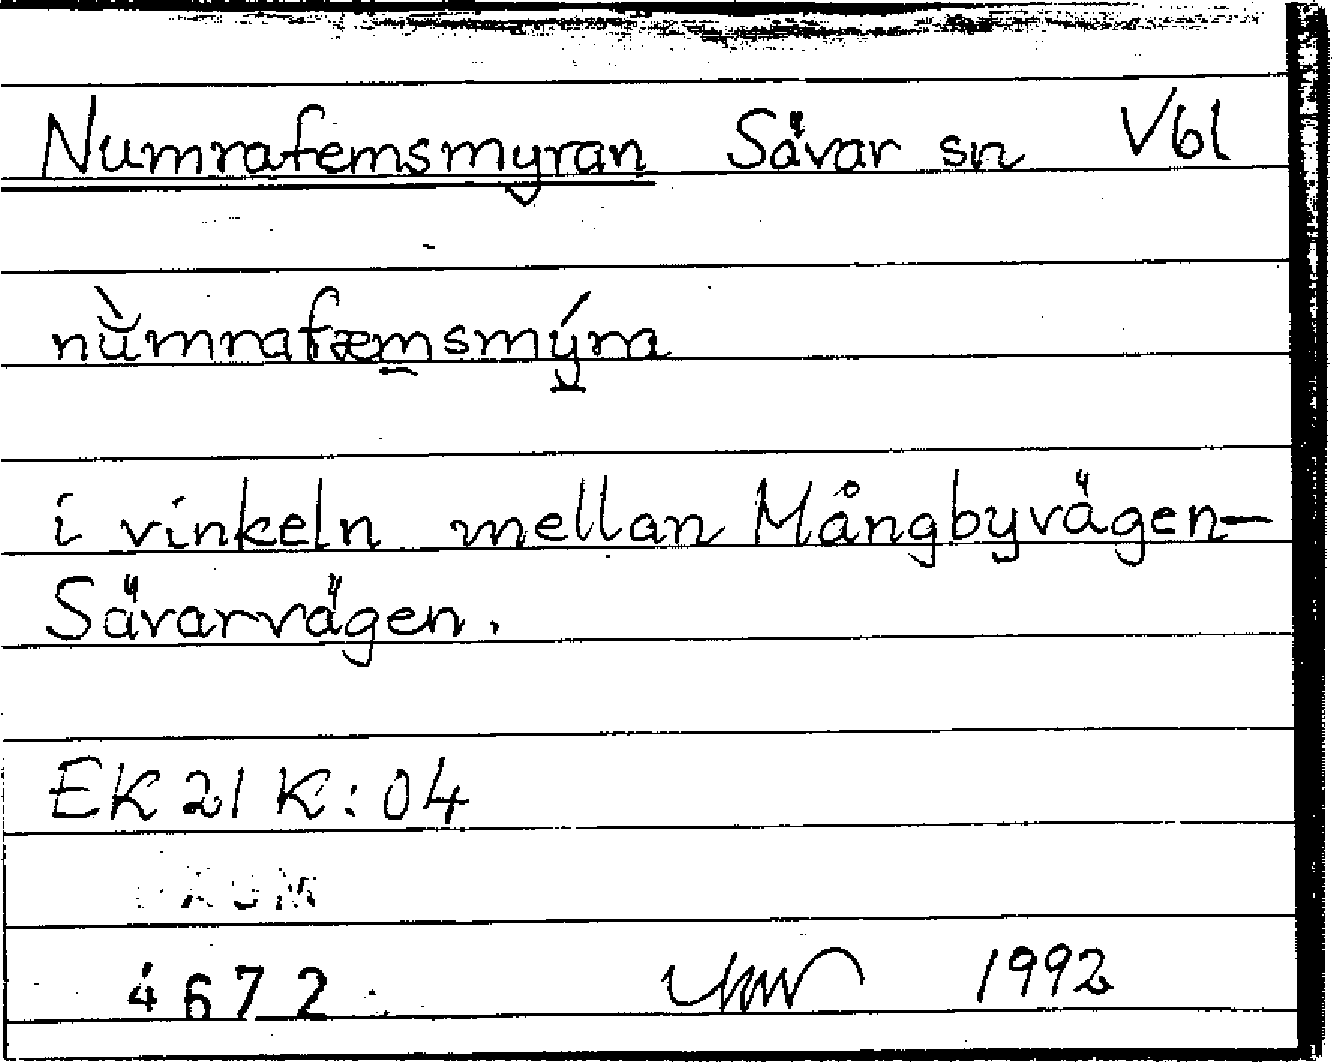 Numrafemsmyran Sävar sn Vbl
nǜmrafæmsmýra
i vinkeln mellan Mångbyvägen—
Sävarvägen.
EK 21 K : 04
4672 1992